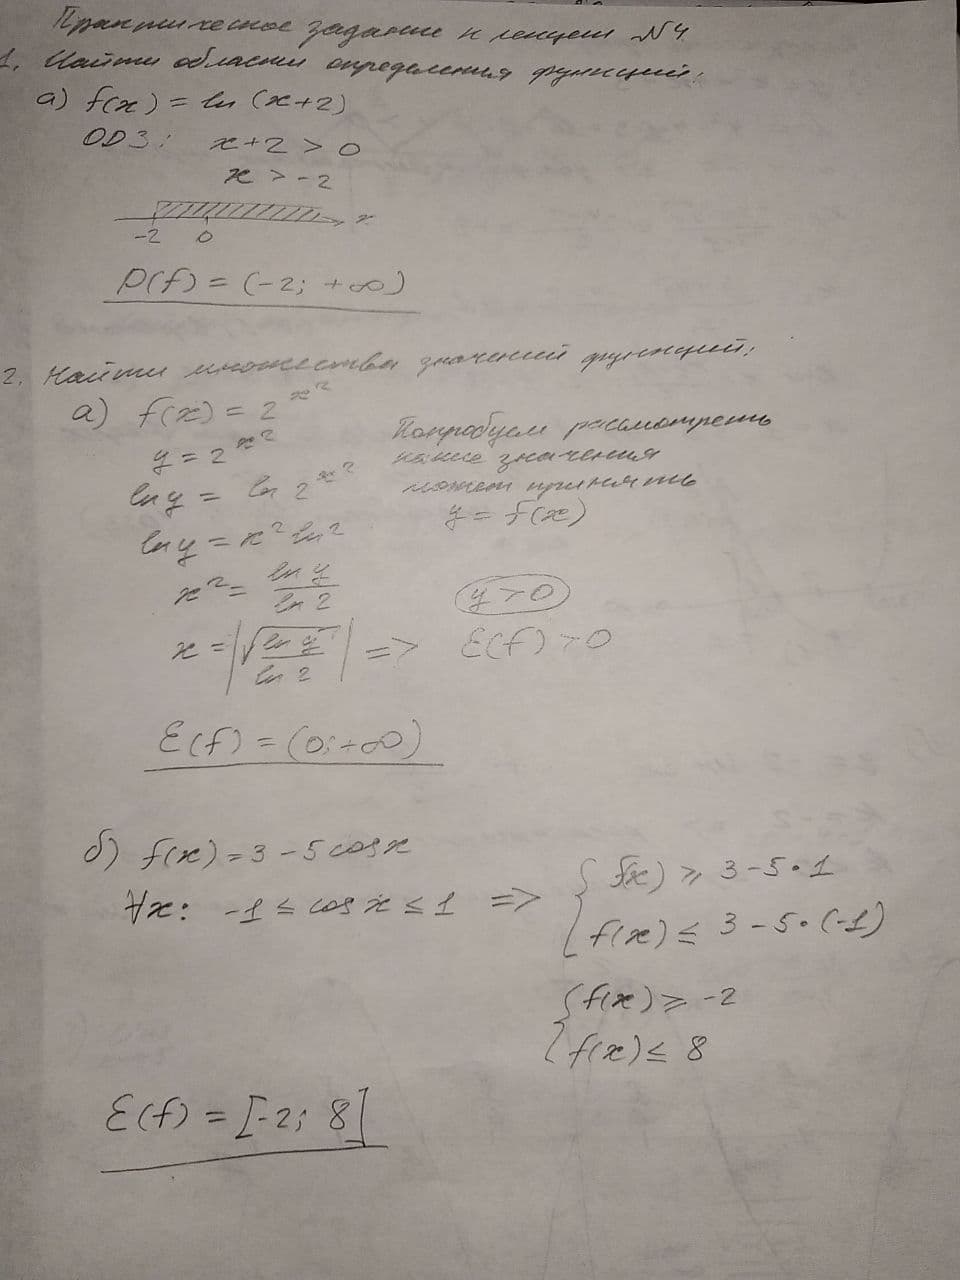 Практическое задание к лекции №4.
1. Найти области определения функций:
а) f(x) = ln (x+2)
ОДЗ: x+2 > 0
x > -2
x
-2 0
D(f) = (-2; +∞)
2. Найти множества значений функций:
а) f(x) = 2^{x^2}
y = 2^{x^2}
ln y = ln 2^{x^2}
ln y = x^2 ln 2
x^2 = \frac{ln y}{ln 2}
x = |\sqrt{\frac{ln y}{ln 2}}| =>
Попробуем рассмотреть
какие значения
может принять
y = f(x)
y > 0
E(f) > 0
E(f) = (0; +∞)
б) f(x) = 3 - 5 cos x
∀x: -1 ≤ cos x ≤ 1 =>
{ f(x) ⩾ 3 - 5 • 1
f(x) ≤ 3 - 5 • (-1)
{ f(x) ⩾ -2
f(x) ≤ 8
E(f) = [-2; 8]